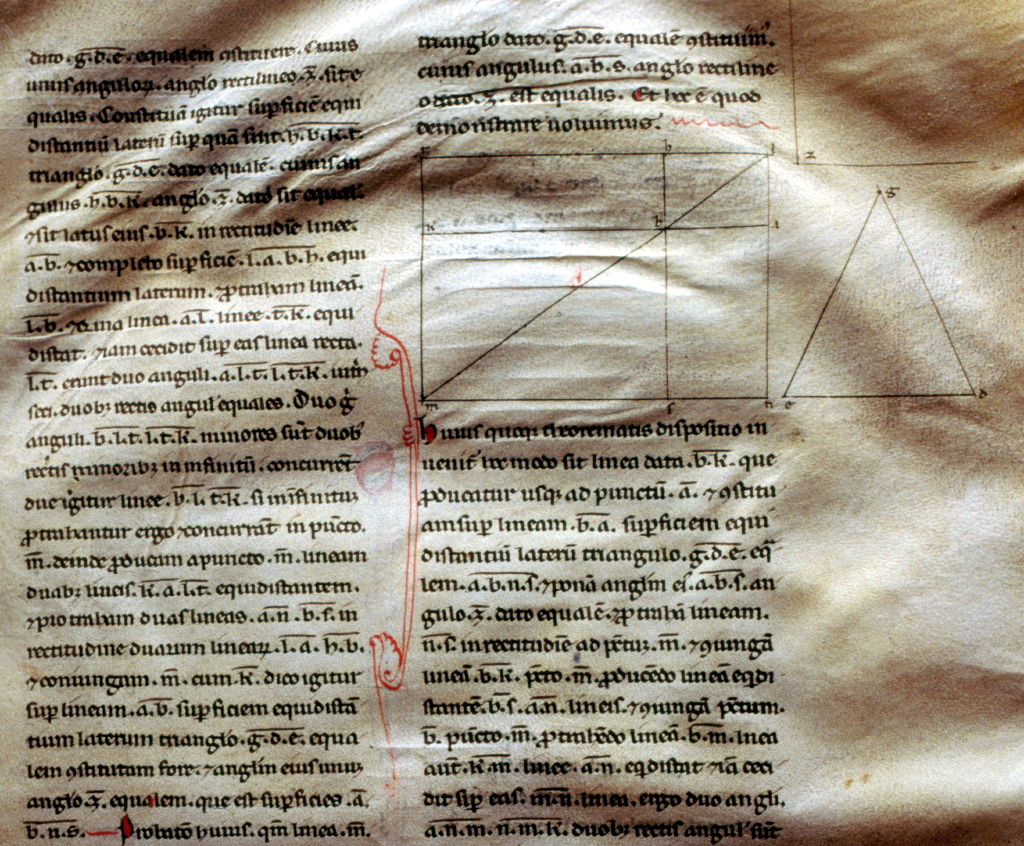 dato .g.d.e. equalem ꝯstituere. Cuius
unius anguloꝝ. anglo rectilineo .z. sit e
qualis. Constituā igitur suꝑficiē equi
distantiū laterū suꝑ quā sint .h.b.k.t.
triangĺo .g.d.e. dato equalē. cuius an
gulus .h.b.k. angĺo .z. dato sit equal
⁊ sit latus eius .b.k. in rectitudīe linee.
a.b. ⁊ completo suꝑficiē .l.a.b.h. equi
distantium laterum. ꝓtraham lineā.
l.b. ⁊ linea .a.l. linee .t.k. equi
distat. ⁊ iam cecidit suꝑ eas linea recta.
l.t. erunt duo anguli .a.l.t. l.t.k.
duobꝫ rectis angul equales. Duo gͥ
anguli .b.l.t. l.t.k. minores sūt duobꝫ
rectis minoribꝫ in infinitū. concurrēt
due igitur linee .b.l. t.k. si in infinitū
ꝓtrahantur ergo ⁊ concurrāt in pūcto.
m. deinde ꝓducam a puncto .m. lineam
duabꝫ lineis .k.a. l.t. equidistantem.
⁊ ꝓtraham duas lineas .a.n. b.s. in
rectitudine duarum linearꝝ .l.a. h.b.
⁊ coniungam .m. cum .k. dico igitur
suꝑ lineam .a.b. suꝑficiem equidistā
tium laterum triangĺo .g.d.e. equa
lem ꝯstitutam fore. ⁊ angĺm eius unū
angĺo .z. equalem. que est suꝑficies .a.
b.n.s. Probatō huius. qm̄ linea .m.
triangĺo dato .g.d.e. equalē ꝯstituim᾽.
cuius angulus .a.b.s. angĺo rectiline
o dato .z. est equalis. Et hec ē quod
demonstrare uoluimus.
b l z
g
k h a
m s n e d
Huius quoqꝫ theorematis dispositio in
uenit᾽ hec modo sit linea data .b.k. que
ꝓducatur usqꝫ ad punctū .a. ⁊ ꝯstitu
am suꝑ lineam .b.a. suꝑficiem equi
distantiū laterū triangulo .g.d.e. eq̄
lem .a.b.n.s. ⁊ ponā angĺm eī .a.b.s. an
gulo .z. dato equalē. ⁊ ꝓtrahā lineam.
n.s. in rectitudīe ad pc̄tū .m. ⁊ ꝯiungā
lineā .b.k. pc̄to .m. ꝓducēdo lineā eq̄di
stantē .b.s. a.n. lineis. ⁊ ꝯiungā pc̄tum.
b. pūcto .m. ꝓtrahēdo lineā .b.m. linea
aut̄ .k.m. linee .a.n. eq̄distat ⁊ iā ceci
dit suꝑ eas .m.n. linea. ergo duo angĺi.
a.n.m. n.m.k. duobꝫ rectis angul᾽ sūt